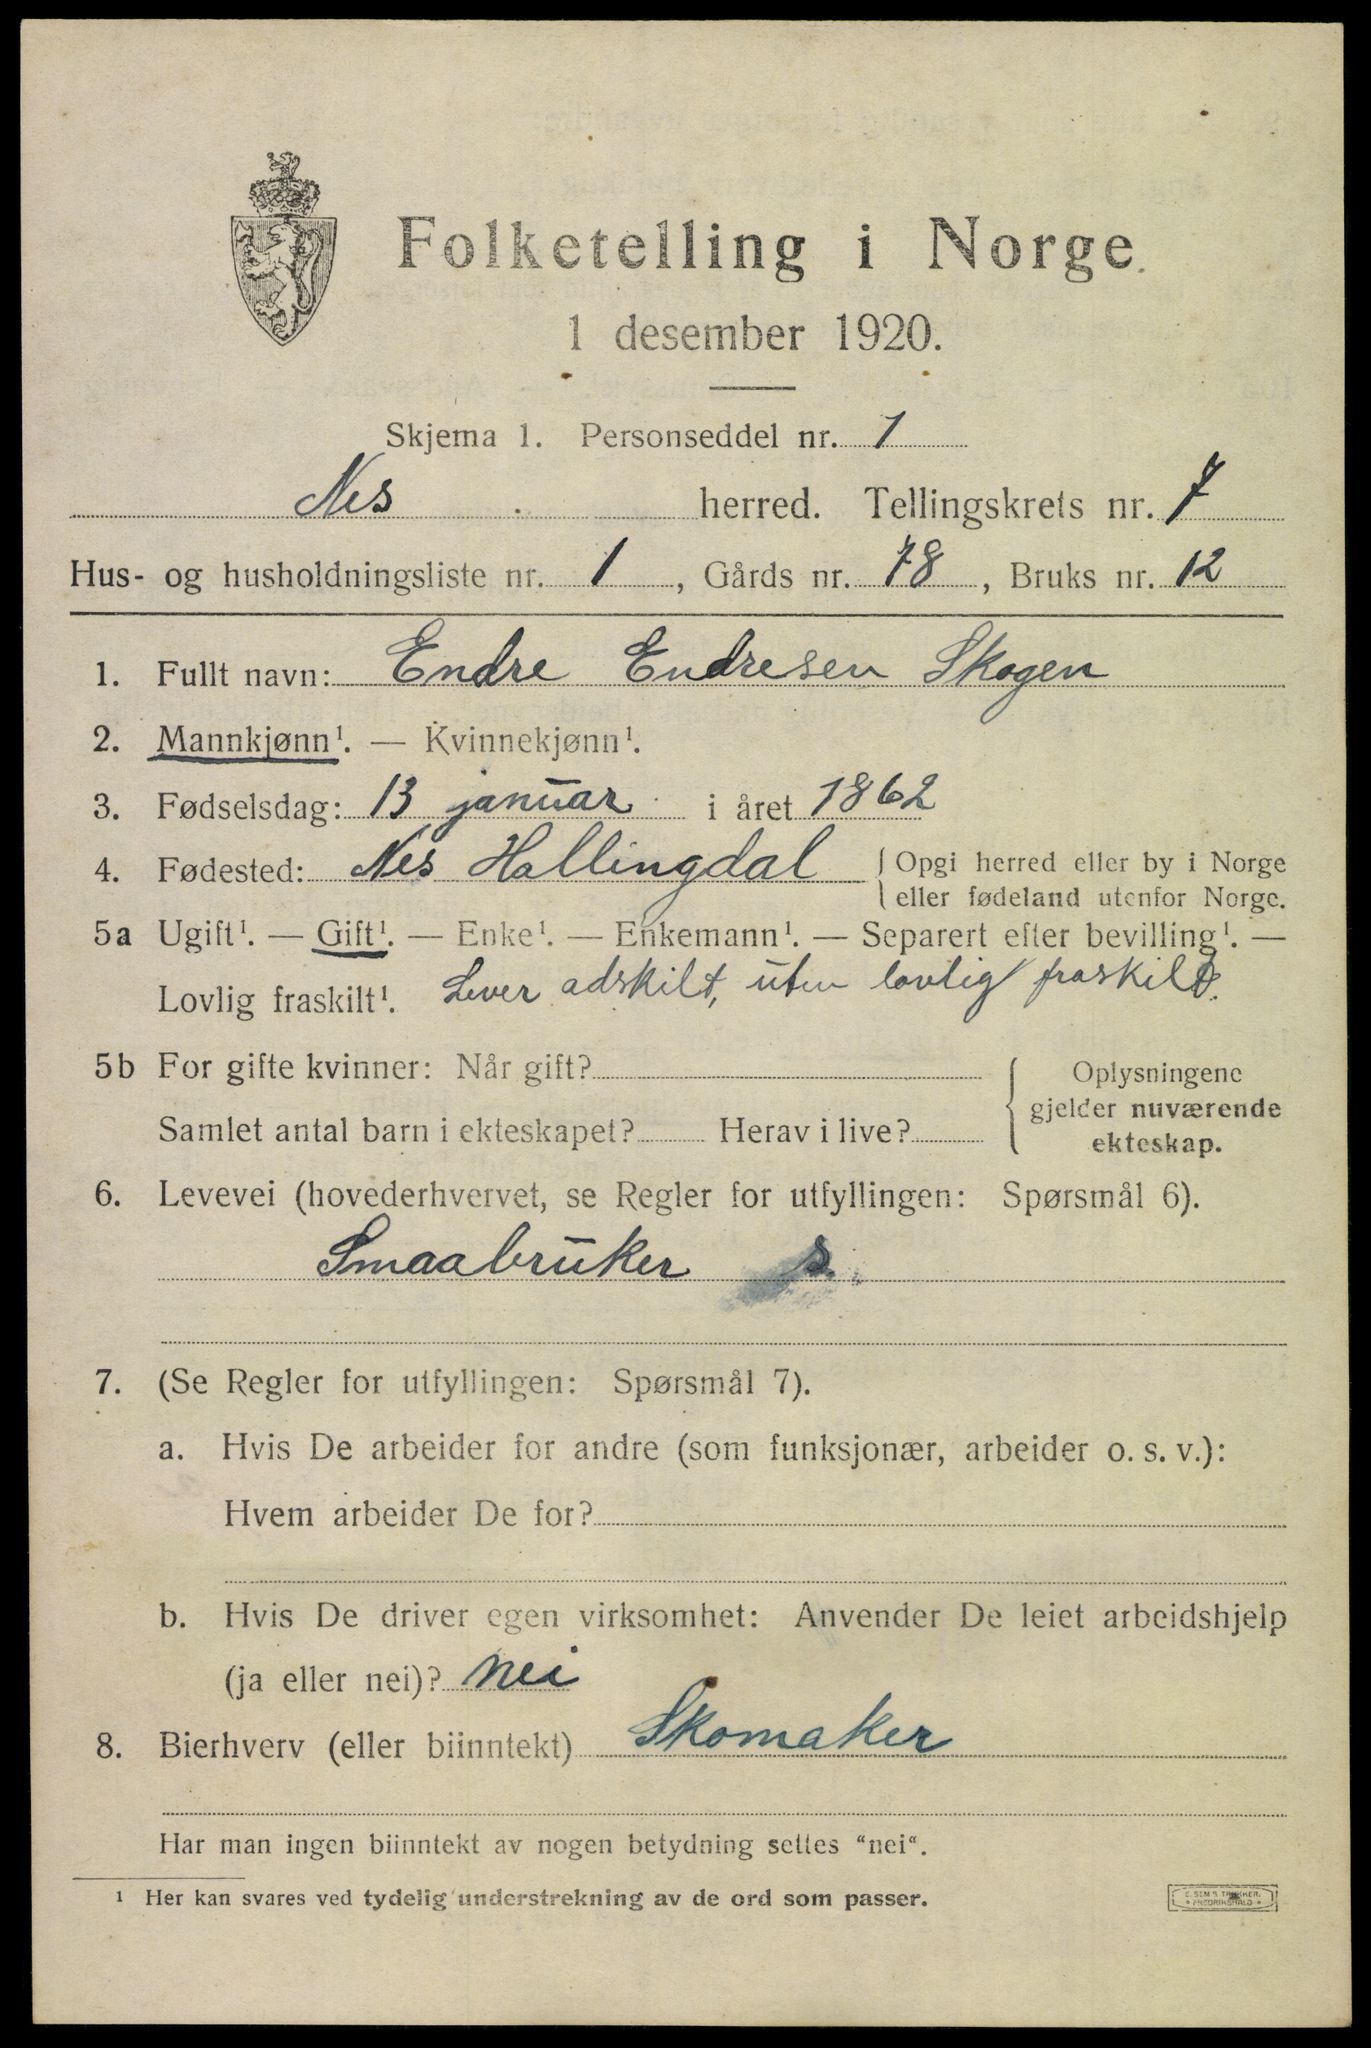 Folketelling i Norge
1 desember 1920.
Skjema 1. Personseddel nr. 1
Nes herred. Tellingskrets nr. 7
Hus- og husholdningsliste nr. 1, Gårds nr. 78, Bruks nr. 12
1. Fullt navn: Endre Endresen Skogen
2. Mannkjønn¹. — Kvinnekjønn¹.
3. Fødselsdag: 13 januar i året 1862
4. Fødested: Nes Hallingdal { Opgi herred eller by i Norge
eller fødeland utenfor Norge.
5a Ugift¹. — Gift¹. — Enke¹. — Enkemann¹. — Separert efter bevilling¹. —
Lovlig fraskilt¹. Lever adskilt, uten lovlig fraskilt.
5b For gifte kvinner: Når gift?
Samlet antal barn i ekteskapet? Herav i live?
{ Oplysningene
gjelder nuværende
ekteskap.
6. Levevei (hovederhvervet, se Regler for utfyllingen: Spørsmål 6).
Smaabruker s.
7. (Se Regler for utfyllingen: Spørsmål 7).
a. Hvis De arbeider for andre (som funksjonær, arbeider o. s. v.):
Hvem arbeider De for?
b. Hvis De driver egen virksomhet: Anvender De leiet arbeidshjelp
(ja eller nei)? nei
8. Bierhverv (eller biinntekt) Skomaker
Har man ingen biinntekt av nogen betydning settes “nei“.
¹ Her kan svares ved tydelig understrekning av de ord som passer.